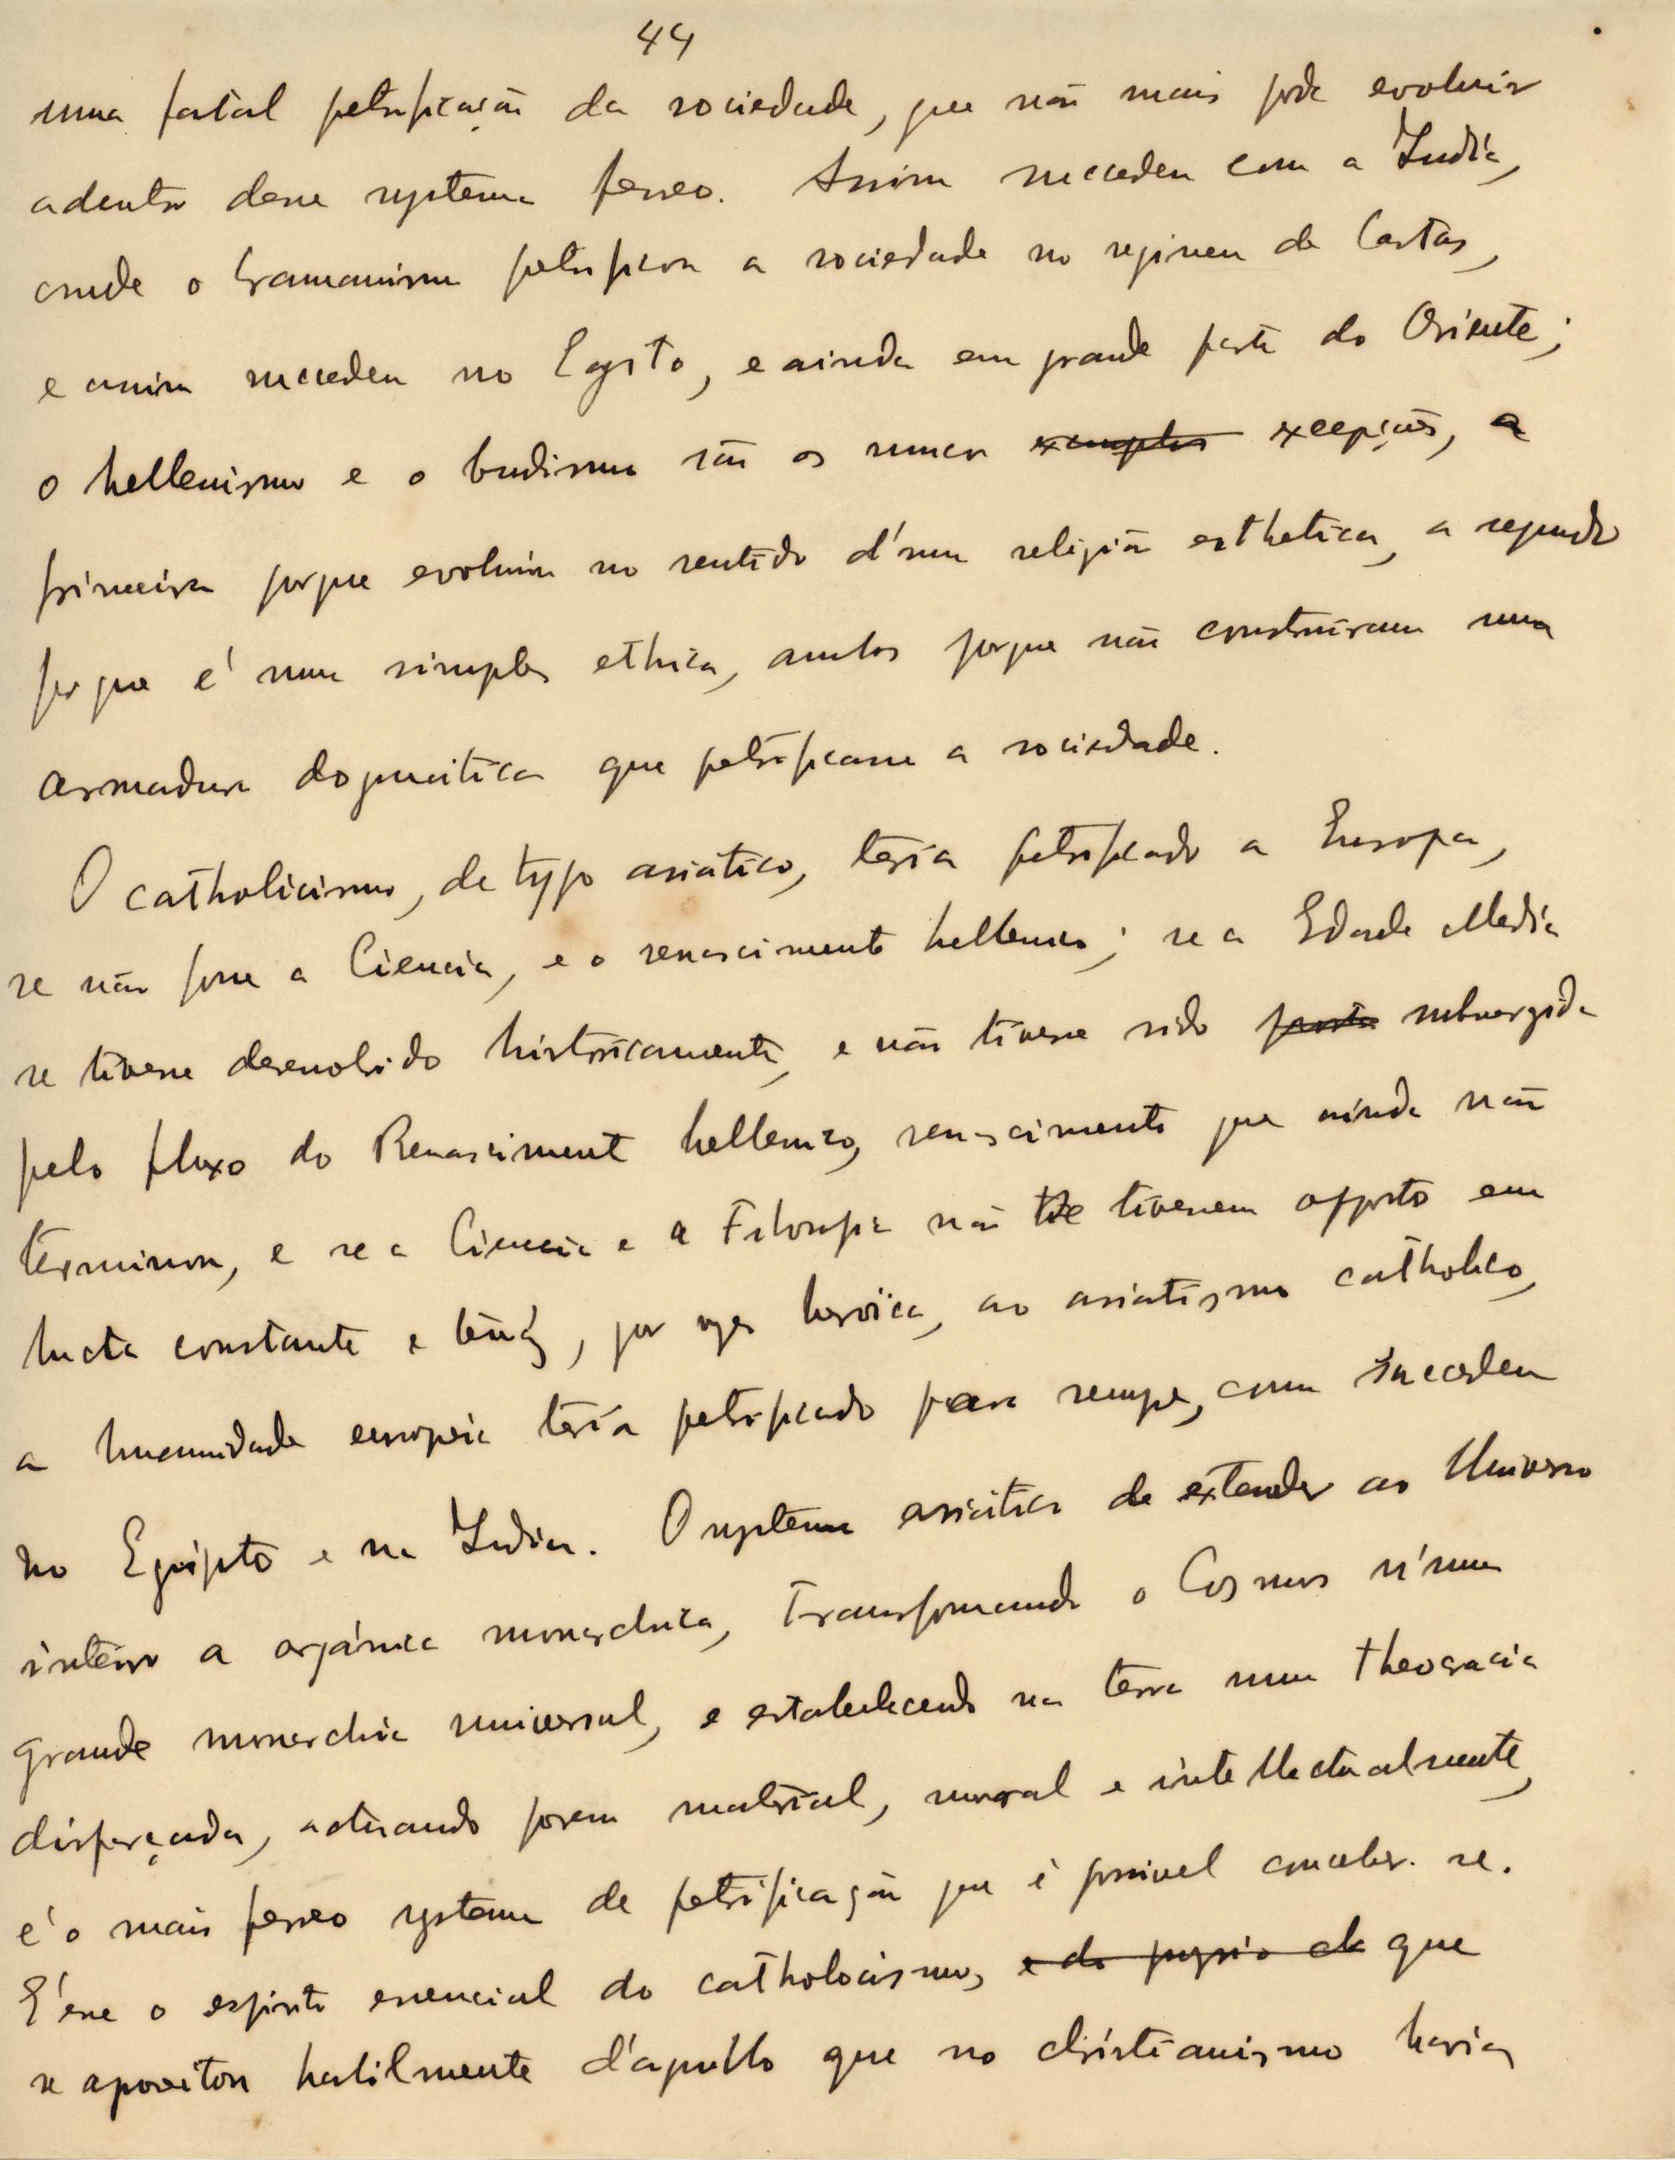 44
uma fatal petrificação da sociedade, que não mais pode evoluir
adentro desse systema ferreo. Assim succedeu com a India,
onde o bramanismo petrificou a sociedade no regimen de Castas,
e assim succedeu no Egito, e ainda em grande parte do Oriente;
o hellenismo e o budismo são os unicos exemplos excepções, a
primeira porque evoluiu no sentido d'uma religião esthetica, a segunda
porque é uma simples ethica, ambos porque não construiram uma
armadura dogmatica que petrificasse a sociedade.
O catholicismo, de typo asiatico, teria petrificado a Europa,
se não fosse a Ciencia, e o renascimento hellenico; se a Edade Media
se tivesse desenvolvido historicamente, e não tivesse sido submergida
pelo fluxo do Renasciment hellenico, renascimento que ainda não
terminou, e se a Ciencia e a Filosofia não tivessem opposto em
lucta constante e tenáz, por vezes heroïca, ao asiatismo catholico,
a humanidade europeia teria petrificado para sempre, como succedeu
no Egipto e na India. O systema asiatico de extender ao Universo
inteiro a orgánica monarchica, transformando o Cosmos n'uma
grande monarchia universal, e estabelecendo na terra uma theocracia
disfarçada, actuando porem material, moral e intellectualmente,
é o mais ferreo systema de petrificação que é possivel conceber-se.
E' esse o espirito essencial do catholocismo, que
se aproveitou habilmente d'aquillo que no christianismo havia